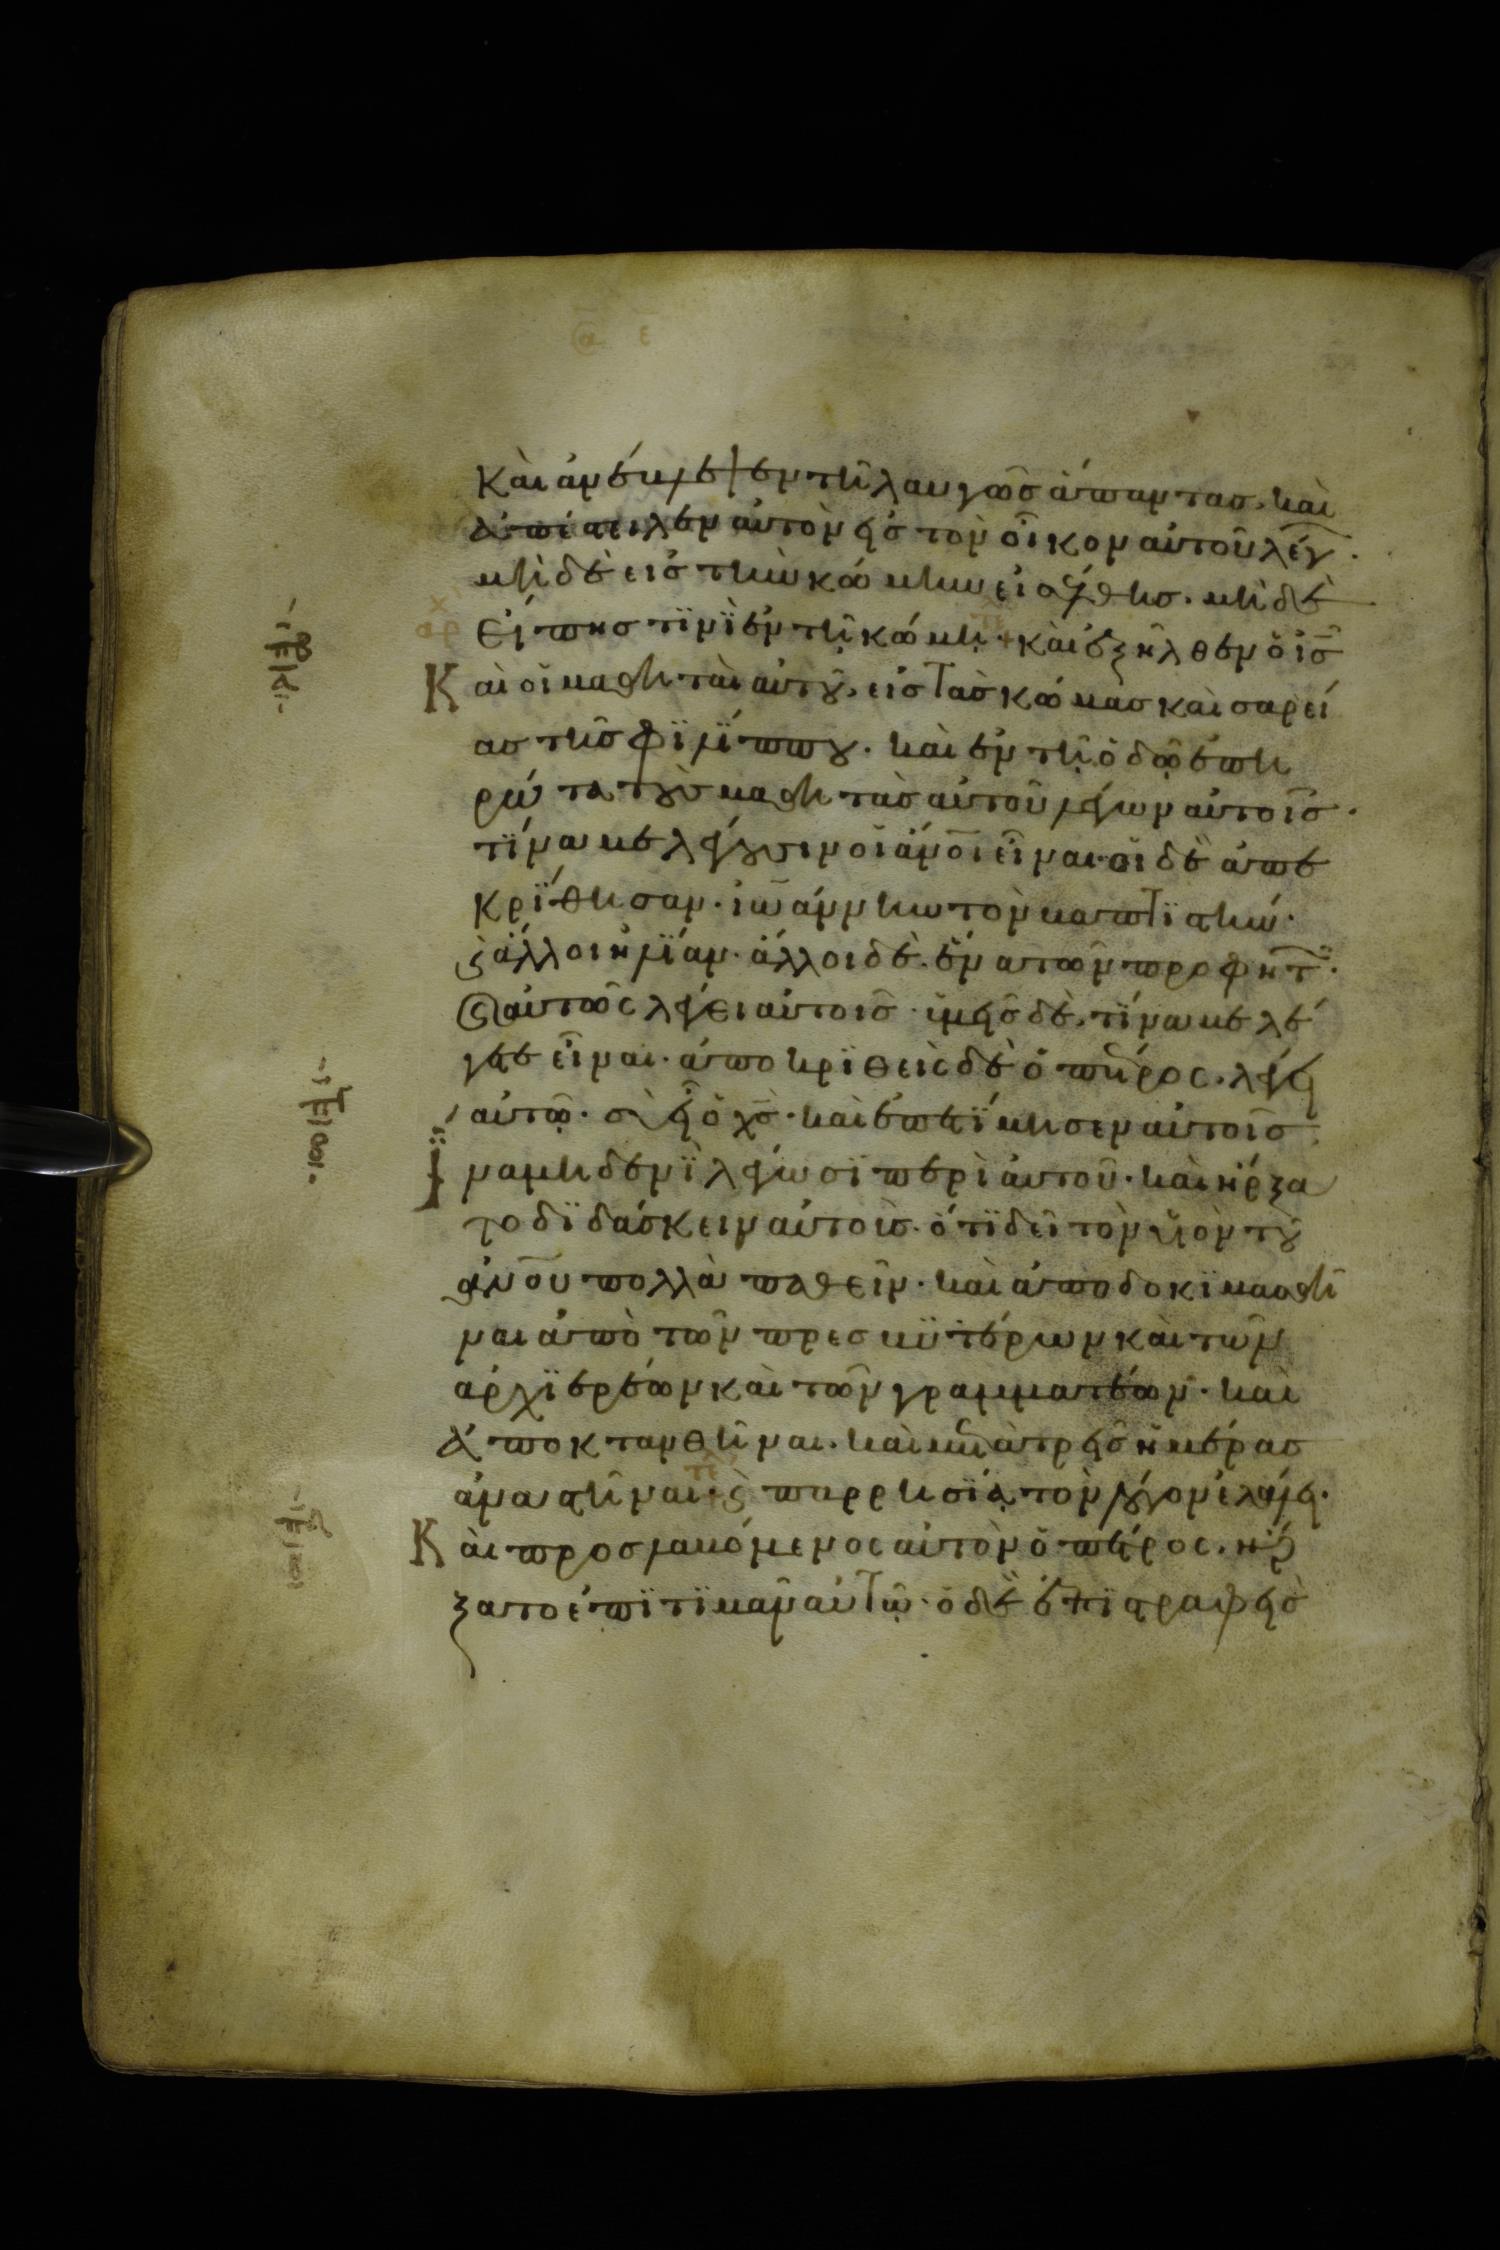 Καὶ ἀνέβλεψεν τηλαυγῶς ἅπαντας. καὶ
ἀπέστειλεν αὐτὸν εἰς τὸν οἶκον αὐτοῦ λέγ.
μὴ δὲ εἰς τὴν κώμην εἰσέλθης. μὴ δὲ
εἴπης τϊνῒ ἐν τῇ κώμῃ + καὶ ἐξῆλθεν ὁ ις
Καὶ οἱ μαθηταὶ αὐτοῦ. εἰς τὰς κώμας καισαρεί
ας τῆς φϊλΐππου. καὶ ἐν τῇ ὁδῷ ἐπη
ρώτα τοὺς μαθητὰς αὐτοῦ λέγων αὐτοῖς.
τΐνα με λέγουσιν οἱ ἄνοι εἶναι. οἱ δὲ ἀπε
κρΐθησαν. ἰωάννην τὸν βαπτϊστήν.
ϛ ἄλλοι ἠλΐαν. ἄλλοι δὲ. ἕνα τῶν προφητ.
ϛ αὐτὸς λέγει αὐτοῖς. ὑμεῖς δὲ. τΐνα με λέ
γετε εἶναι. ἀποκρϊθεὶς δὲ ὁ πέτρος. λέγει
αὐτῷ. σὺ εἶ ὁ χς. καὶ ἐπετΐμησεν αὐτοῖς
ἵνα μηδενῒ λέγωσϊ περὶ αὐτοῦ. καὶ ἤρξα
το δϊδάσκειν αὐτοὺς. ὅτϊ δεῖ τὸν υἱὸν τοῦ
ἀνου πολλὰ παθεῖν. καὶ ἀποδοκϊμασθῆ
ναι ἀπὸ τῶν πρεσβϋτέρων καὶ τῶν
ἀρχϊερέων καὶ τῶν γραμματέων. καὶ
ἀποκτανθῆναι. καὶ μετὰ τρεῖς ἡμέρας
ἀναστῆναι. ϛ παρρησΐᾳ τὸν λόγον ἐλάλει.
Καὶ προσλαβόμενος αὐτὸν ὁ πέτρος. ἤρ
ξατο ἐπϊτϊμᾶν αὐτῷ. ὁ δὲ ἐπϊστραφεὶς